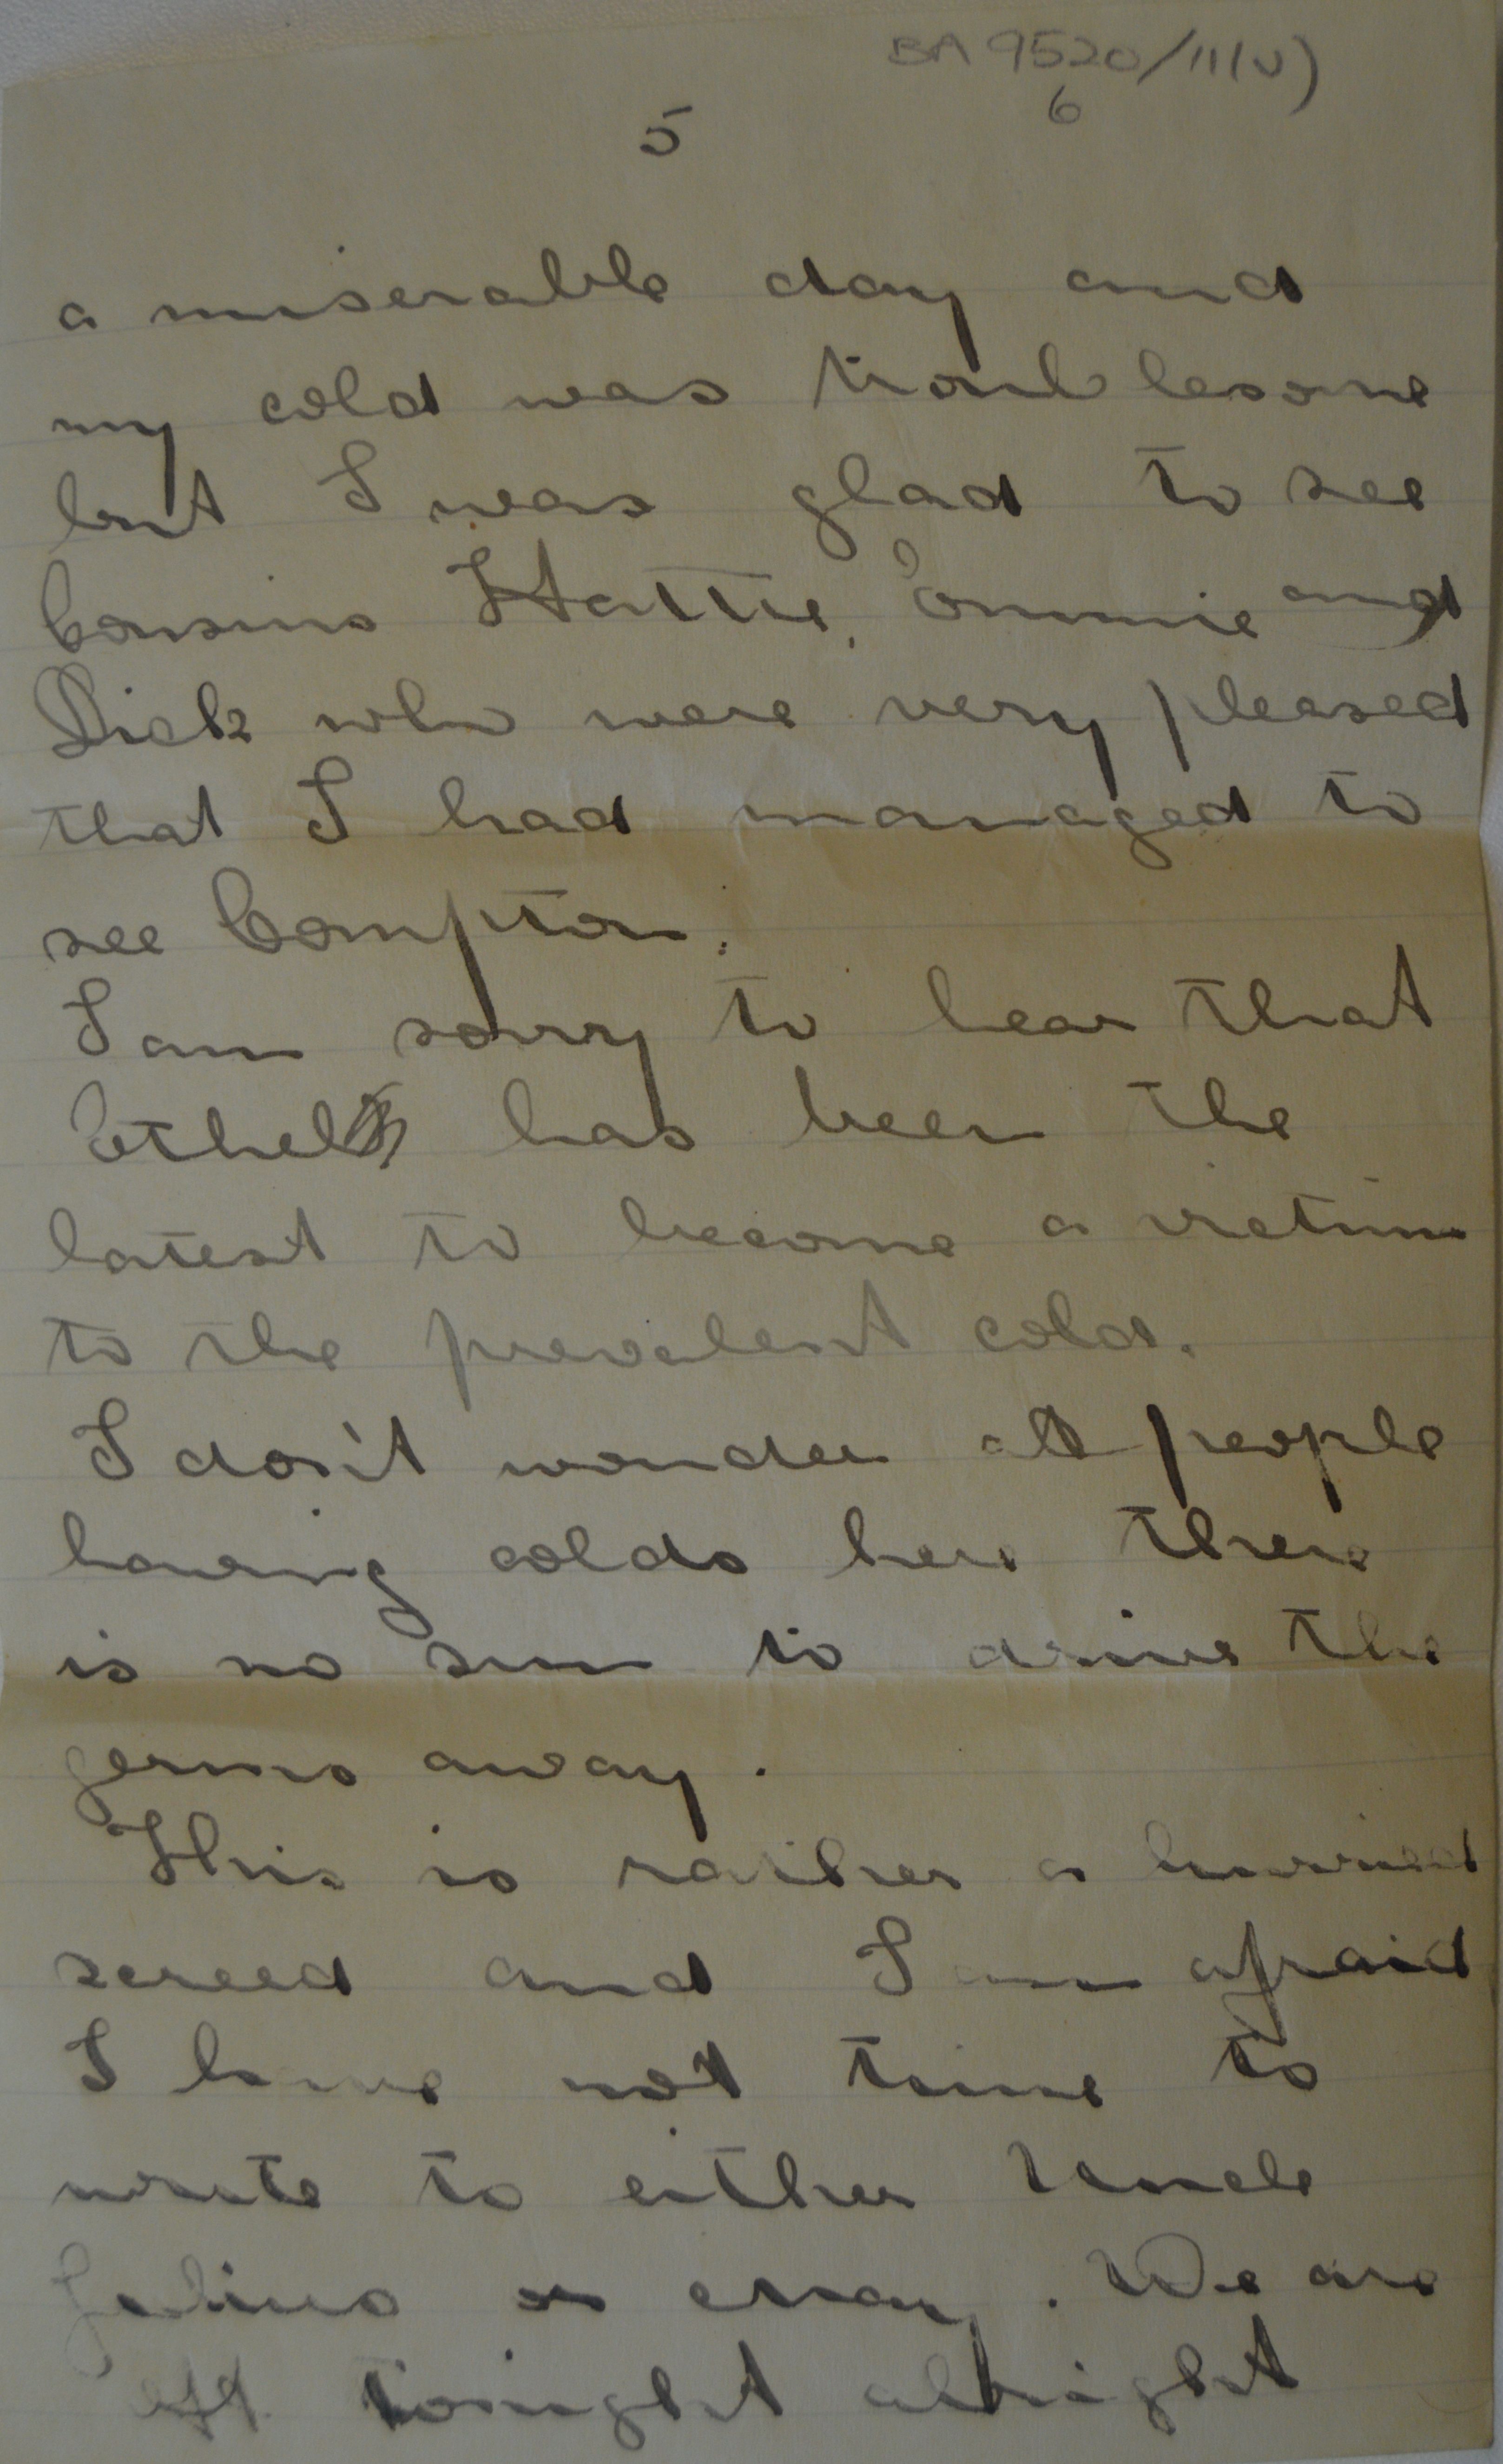 BA 9520/11(v)
6
5
a miserable day and
my cold was troublesome
but I was glad to see
Cousins Hattie, Emmie and
Dick who were very pleased
that I had managed to
see Compton.
I am sorry to hear that
Ethel has been the
latest to become a victim
to the prevalent cold.
I don't wonder at people
having colds here there
is no sun to drive the
germs away.
This is rather a hurried
screed and I am afraid
I have not time to
write to either Uncle
Julius or . We are
off tonight alright